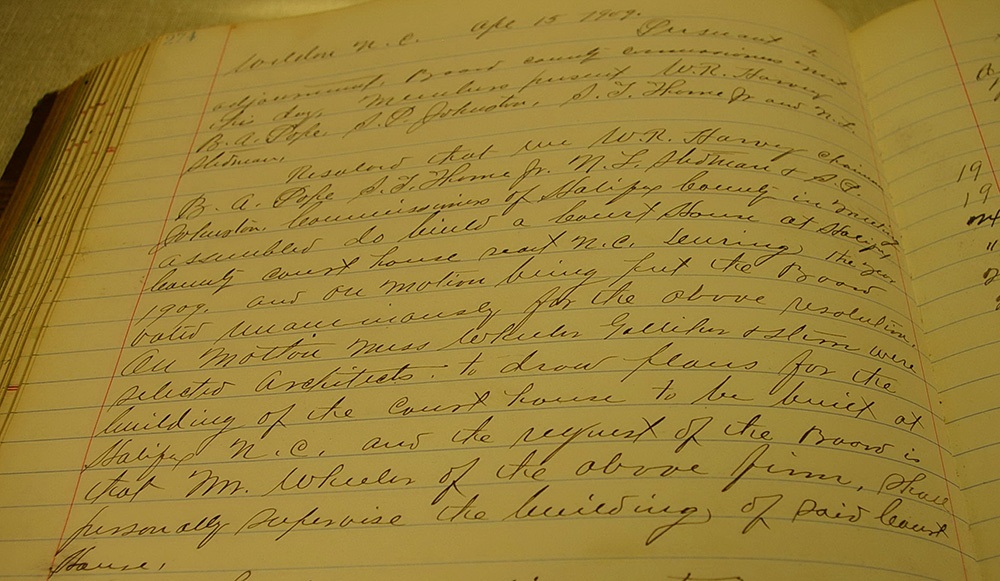 Weldon N.C. Apl 15 1909.
Pursuant to
adjournment Board county commissioners met
this day. Members present W.R. Harvey
B.A. Pope, S.P. Johnston, S.T. Thorne Jr and N.L.
Stedman.
Resolved that we W.R. Harvey chairman
B. A. Pope S.T. Thorne Jr. N.L. Stedman & S.P.
Johnston, Commissioners of Halifax County in meeting
assembled do build a Court House at Halifax
County court house seat N.C. during the year
1909. and on motion being put the Board
voted unanimously for the above resolution.
On motion Mess Wheeler Galliher & Stern were
selected Architects to draw plans for the
building of the court house to be built at
Halifax N.C. and the request of the Board is
that Mr. Wheeler of the above firm, shall
personally supervise the building of said Court
House.
19
19